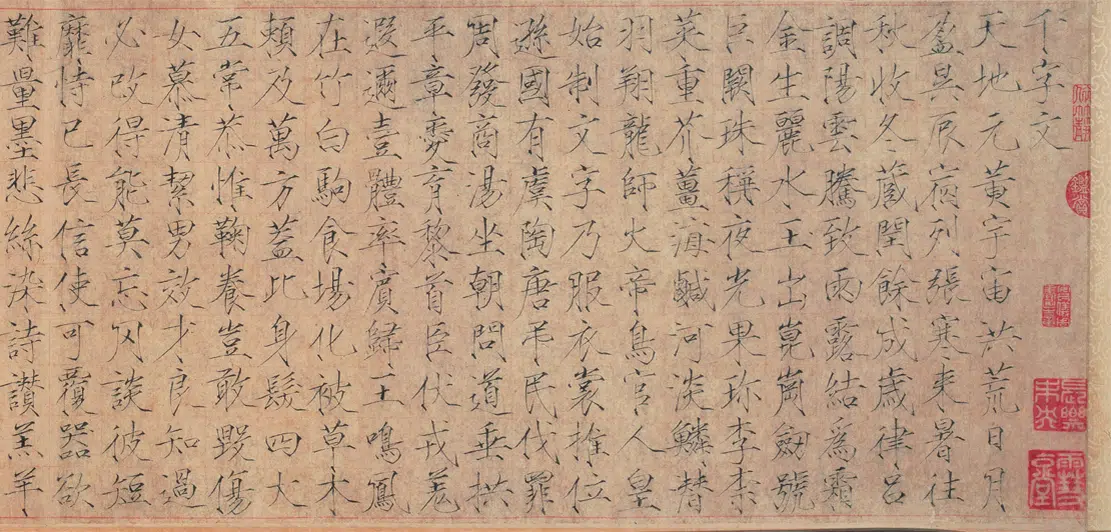 千字文
天地元黃宇宙洪荒日月
盈昃辰宿列張寒来暑往
秋收冬藏閏餘成歲律呂
調陽雲騰致雨露結為霜
金生麗水玉出崑崗劒號
巨闕珠稱夜光果珎李柰
菜重芥薑海鹹河淡鱗潛
羽翔龍師火帝鳥官人皇
始制文字乃服衣裳推位
遜國有虞陶唐弔民伐罪
周發商湯坐朝問道垂拱
平章愛育黎首臣伏戎羌
遐邇壹體率賓歸王鳴鳳
在竹白駒食場化被草木
頼及萬方蓋此身髮四大
五常恭惟鞠養豈敢毀傷
女慕清絜男效才良知過
必改得能莫忘罔談彼短
靡恃已長信使可覆器欲
難量墨悲絲染詩讚羔羊